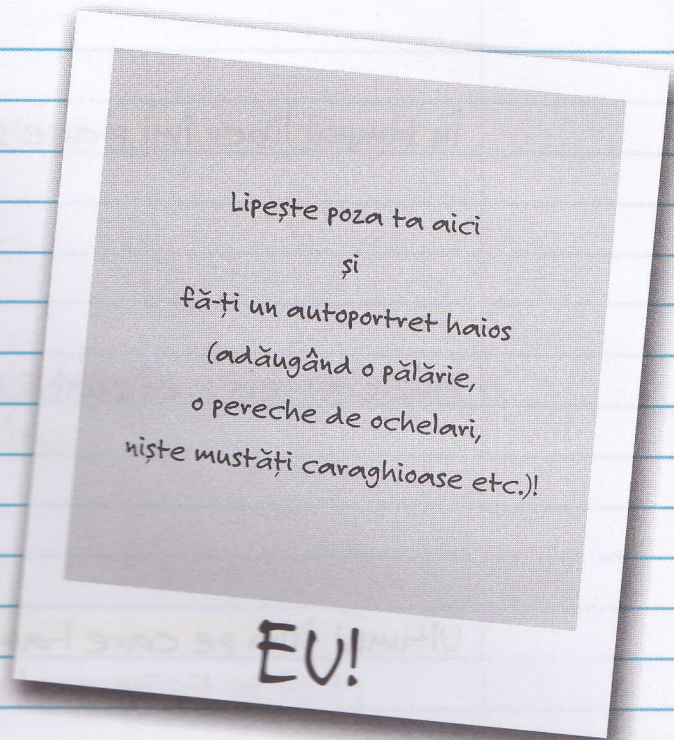 Lipește poza ta aici
și
fă-ți un autoportret haios
(adăugând o pălărie,
o pereche de ochelari,
niște mustăți caraghioase etc.)!
EU!